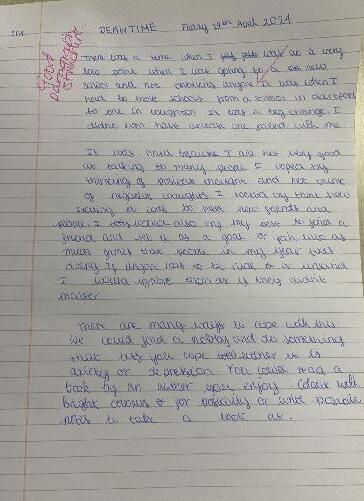 DEAR TIME Friday 19th April 2024
Good paragraph structure
There was a time when I felt was at a very
low point when I was going to a new
school and not knowing anyone. It was when I
had to move schools from a school in
to one in it was a big change I
didnt even have one friend with me
It was hard because I am not very good
at talking to many people I coped by
thinking of positive thoughts and not think
of negative thoughts I would say think how
it was to have new friends and
people. I would also try my best to find a
friend and set it as a goal or join into as
much groups that people in my year
doing If anyone was to be rude or is unkind
I would ignore them as if they didnt
matter
There are many ways to cope with this
We could find a hobby and do something
that lets you cope either it is
anxiety or depression. You could read a
book by an author you enjoy. Colour with
bright colours for positivity or write positive
notes to take a look at.